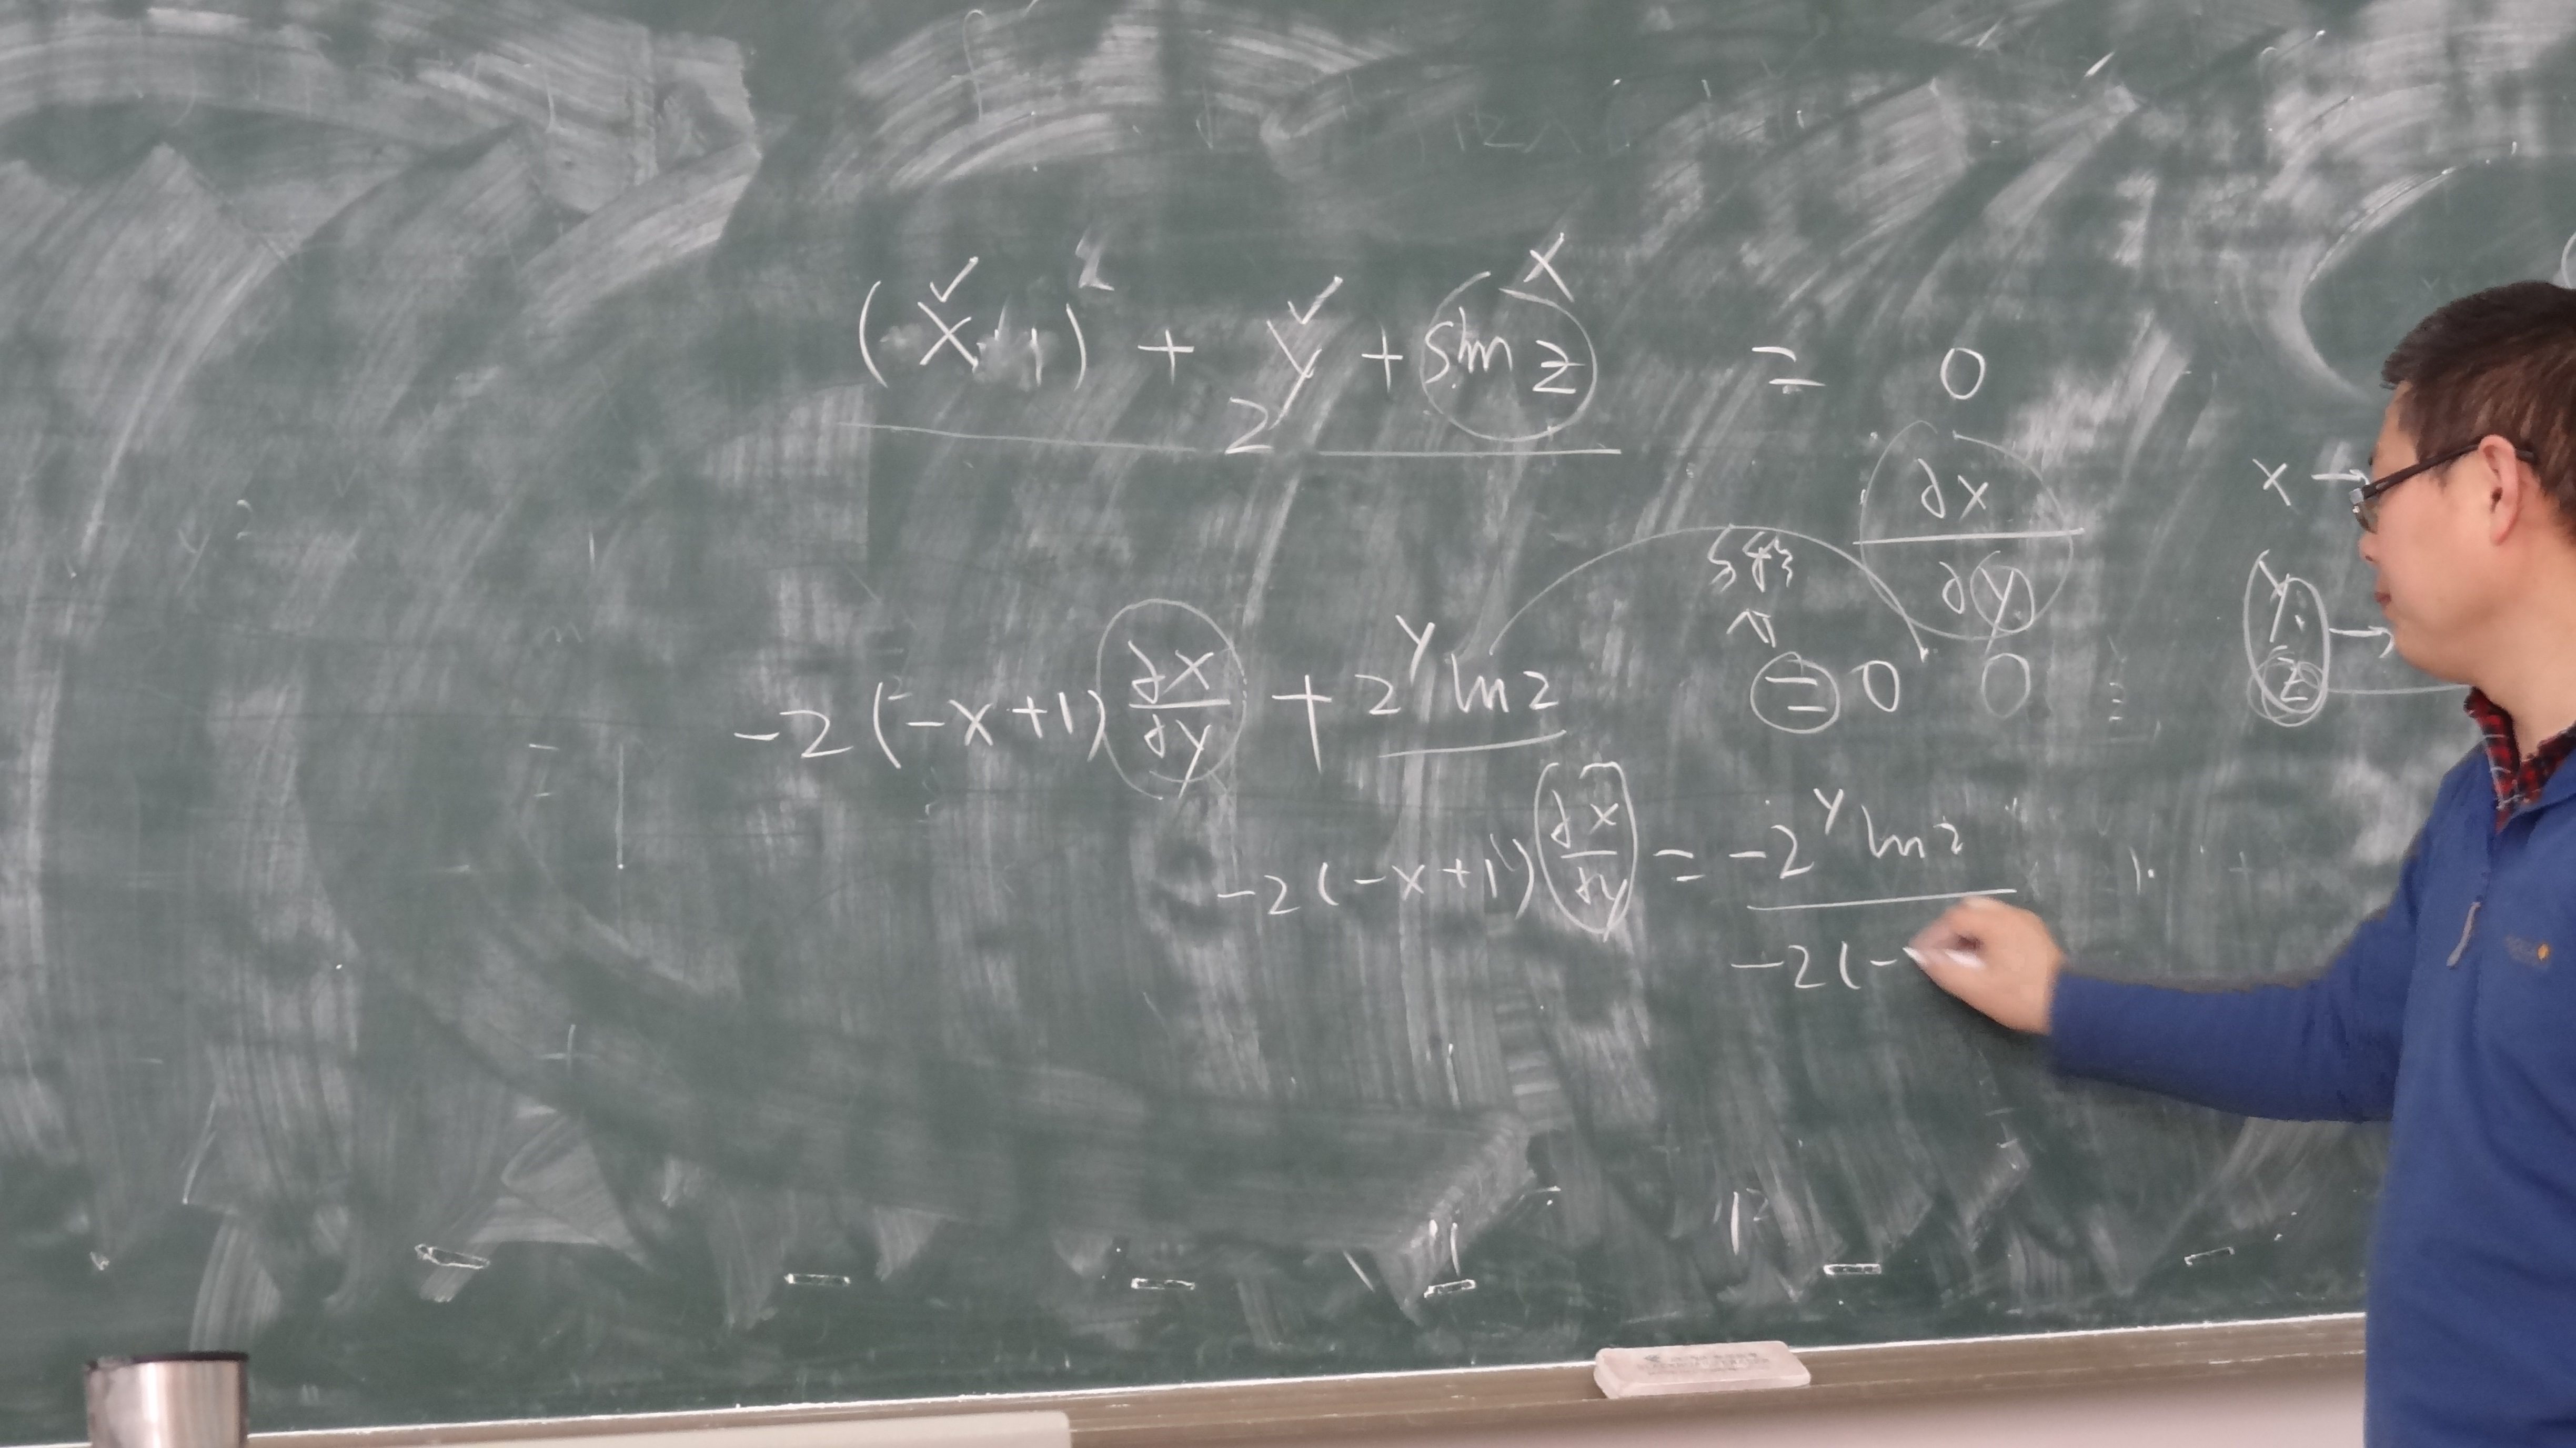 (-x+1)² + 2^y + sin z = 0
∂x/∂y
x →
y →
z
-2(-x+1) ∂x/∂y + 2^y ln2 = 0 0
-2(-x+1) ∂x/∂y = -2^y ln2
-2(-